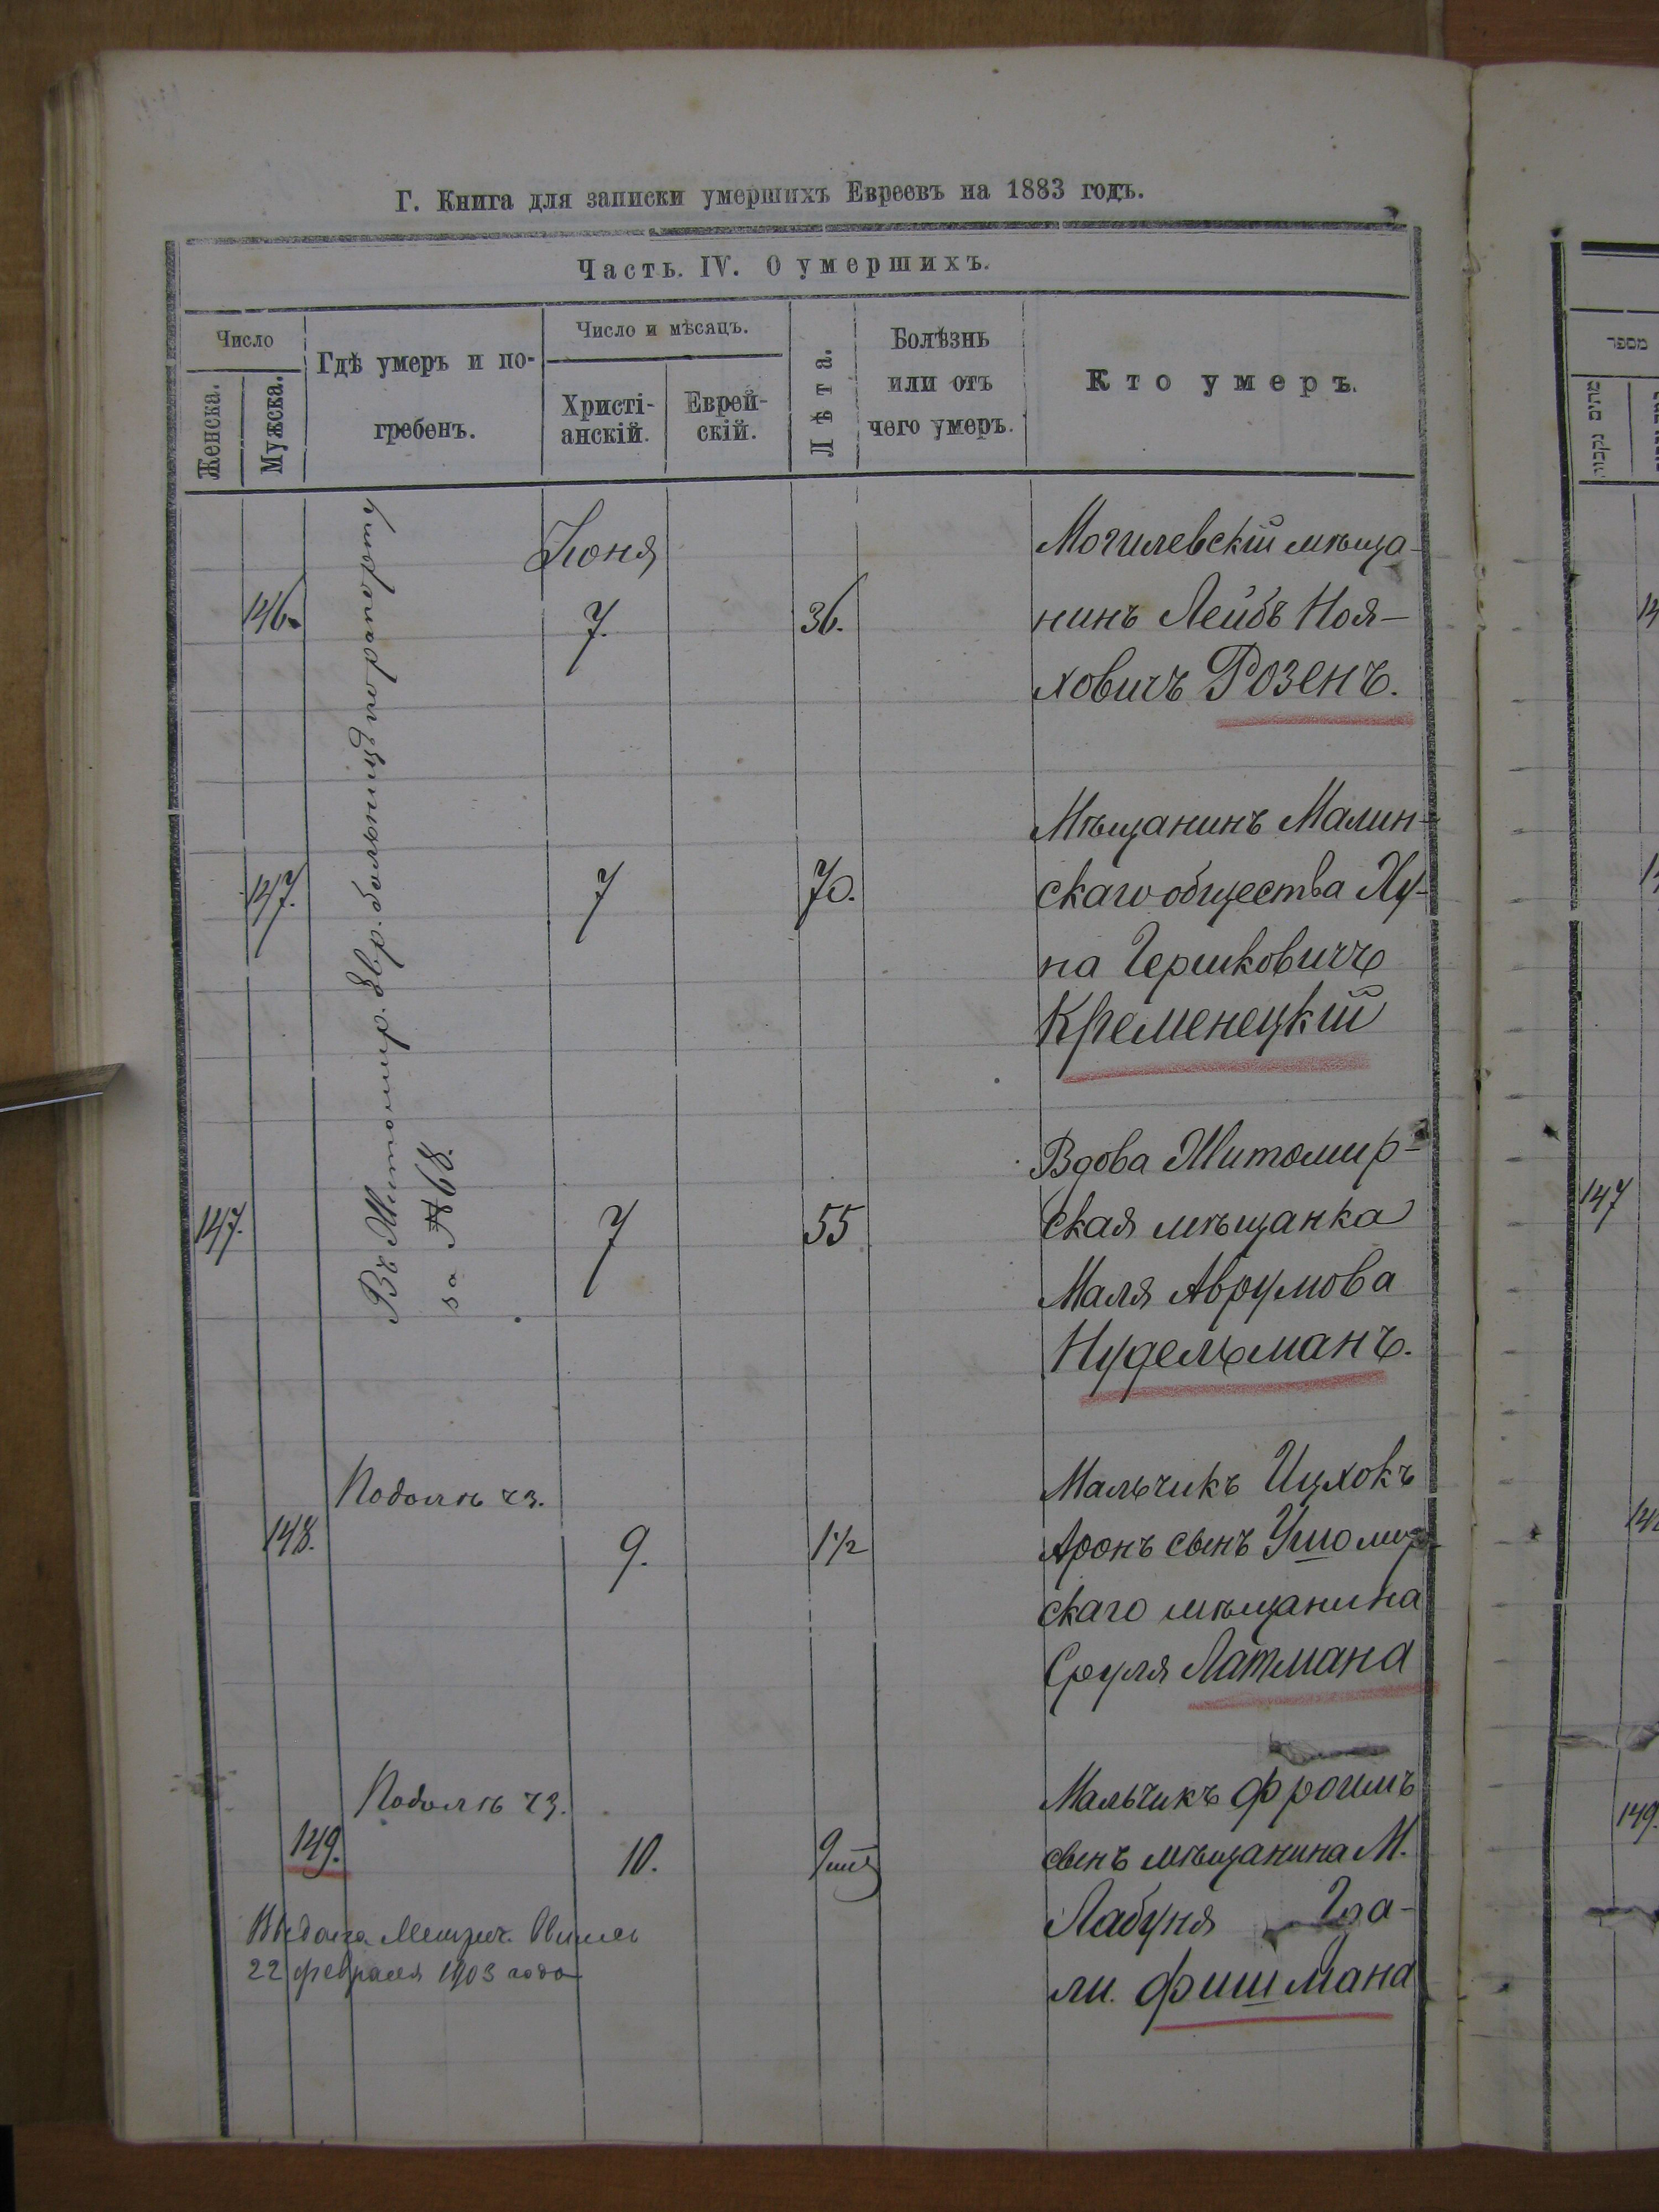 Г. Книга для записки умершихъ Евреевъ на 1883 годъ.
Часть. IV. О умершихъ.
Число
Женска.
Мужска.
Гдѣ умеръ и по-
гребенъ.
Число и мѣсяцъ.
Христі-
анскій.
Еврей-
скій.
Лѣта.
Болѣзнь
или отъ
чего умеръ.
Кто умеръ.
Въ Житомир. Евр. больницѣ по рапорту
за № 68.
Іюня
146.
7.
36.
Могилевскій мѣща-
нинъ Лейбъ Ноя-
ховичъ Розенъ.
147.
7
70.
Мѣщанинъ Малин-
скаго общества Ху-
на Гершковичъ
Кременецкій
147.
7
55
Вдова Житомир-
ская мѣщанка
Маля Аврумова
Нудельманъ.
Подолѣ чз.
148.
9.
1½
Мальчикъ Ицхокъ
Аронъ сынъ Ушомир-
скаго мѣщанина
Сруля Латмана
Подолѣ чз.
149.
10.
9
Мальчикъ Фроимъ
сынъ мѣщанина М.
Лабуня
ли. Фишмана
Выдана Метрич. Выпись
22 февраля 1903 года
מספר
147
149.